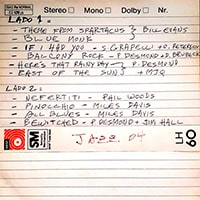 Stereo Mono Dolby Nr.
LADO 1:
- THEME FROM SPARTACUS } BILL EVANS
BLUE MONK
- IF I HAD YOU - S. GRAPELLI + O. PETERSON
- BALCONY ROCK - P. DESMOND + D. BRUBECK
- HERE'S THAT RAINY DAY } P. DESMOND
- EAST OF THE SUN } + MJQ
LADO 2:
- NEFERTITI - PHIL WOODS
- PINOCCHIO - MILES DAVIS
- ALL BLUES - MILES DAVIS
- BEWITCHED - P. DESMOND + JIM HALL
BASF
SM
JAZZ 04
LH
60